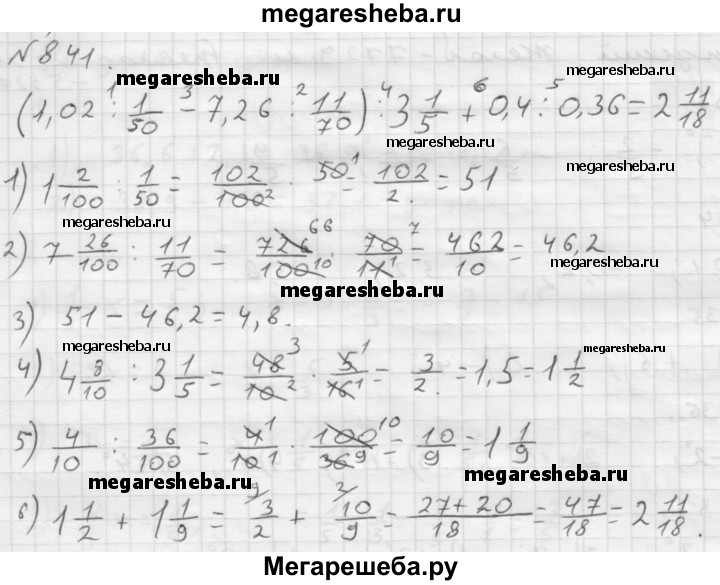 megaresheba.ru
N 841.
megaresheba.ru megaresheba.ru
(1,02 : 1/50 - 7,26 : 11/70) : 3 1/5 + 0,4 : 0,36 = 2 11/18
1 3 2 4 6 5
megaresheba.ru
megaresheba.ru
1) 1 2/100 : 1/50 = 102/100 2 · 50 1 = 102/2 = 51
megaresheba.ru
2) 7 26/100 : 11/70 = 726 66/100 10 · 70 7/11 1 = 462/10 = 46,2
megaresheba.ru
megaresheba.ru
3) 51 - 46,2 = 4,8.
megaresheba.ru megaresheba.ru
4) 4 8/10 : 3 1/5 = 48 3/10 2 · 5 1/16 1 = 3/2 = 1,5 = 1 1/2
5) 4/10 : 36/100 = 4 1/10 1 · 100 10/36 9 = 10/9 = 1 1/9
megaresheba.ru megaresheba.ru
6) 1 1/2 + 1 1/9 = 3/2 9 + 10/9 2 = 27+20/18 = 47/18 = 2 11/18.
Мегарешеба.ру